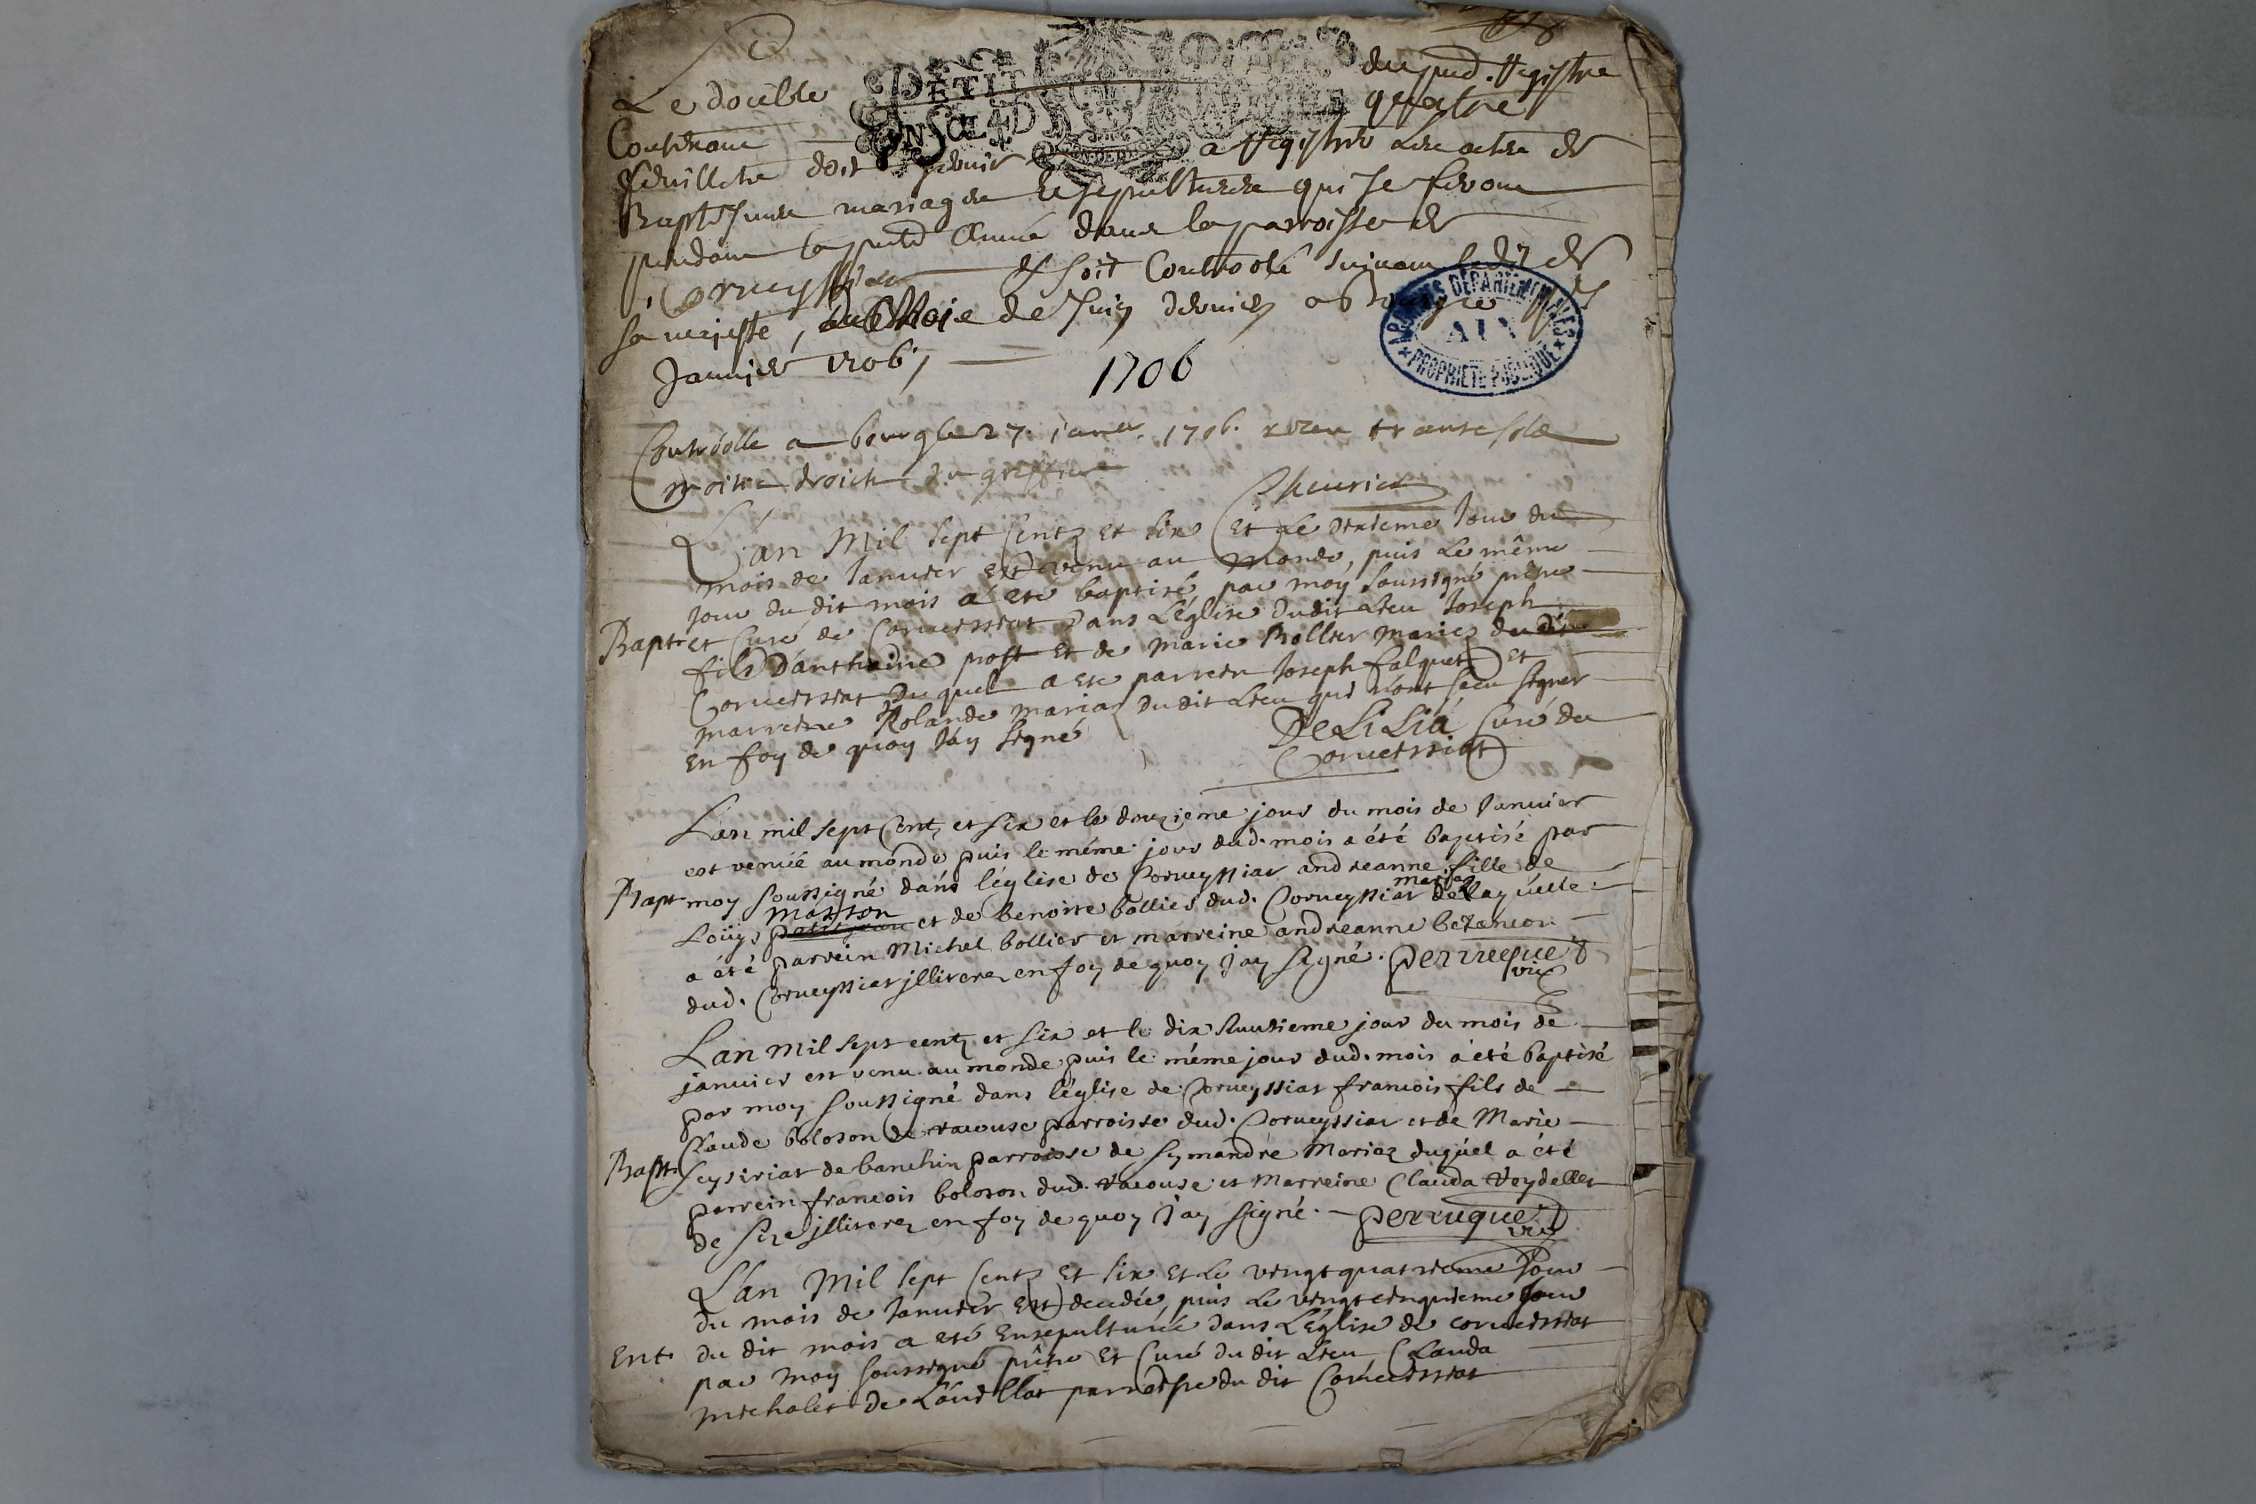 Le double du pnd. Registre
Contenant quatre
feuillets doit servir a Registrer Les actes de
Baptesmes mariages et sepultures qui se feront
pendant la pnte Année dans la parroisse de
Corveyssiat et soit Controolé suivant ledit de
sa majesté, du Mois de Juin dernier a Bourg ce
Janvier 1706,
1706
PETIT
EN SCEL
ARCHIVES DÉPARTEMENTALES
AIN
PROPRIÉTÉ PUBLIQUE
Controolle a bourg le 27 janer. 1706. receu trante sols
moitie droict du greffier
Cheurier
L'an Mil sept Centz et six Et Le dixieme Jour du
mois de Janvier est venu au monde, puis Le même
Jour du dit mois a été baptisé par moy soussigné prêtre
Bapt et Curé de Corveissiat dans L'église dudit Lieu Joseph
fils d'anthoine post et de marie Bollier mariez du dit
Corveissiat du quel a été parrein Joseph falquet et
marreine Rolande maria dudit Lieu qui n'ont sceu signer
en foy de quoy J'ay signé DeLiLia Curé de
Corveissiat
L'an mil sept Centz et six et le douzieme jour du mois de Janvier
est venuë au monde puis le même jour dud. mois a été baptisé par
Bapt moy soussigné dans l'église de Corveyssiat andreanne fille de
Loüys masson et de benoite bollier dud. Corveyssiat mariez de laquelle
a été parrein Michel bollier et marreine andreanne betancon
dud. Corveyssiat jllitterez en foy de quoy j'ay signé. perruquet
vic
L'an mil sept centz et six et le dix huitieme jour du mois de
janvier est venu au monde puis le même jour dud. mois a été baptisé
par moy soussigné dans l'église de Corveyssiat francois fils de
Claude boloson de racouse parroisse dud. Corveyssiat et de Marie
Bapt Seysiriat de banchin parroisse de symandre Mariez duquel a été
parrein francois boloson dud. racouse et Marreine Clauda Reydellet
de Size jlliterez en foy de quoy j'ay signé. perruquet
vic
L'an Mil sept Centz et six et Le vingt quatrieme Jour
du mois de Janvier est decedée, puis Le vingt cinquieme Jour
Ent. du dit mois a été ensepulturée dans L'église de corveissiat
par moy soussigné prêtre et Curé du dit Lieu Clauda
michalet de Lavillat parroisse du dit Corveissiat